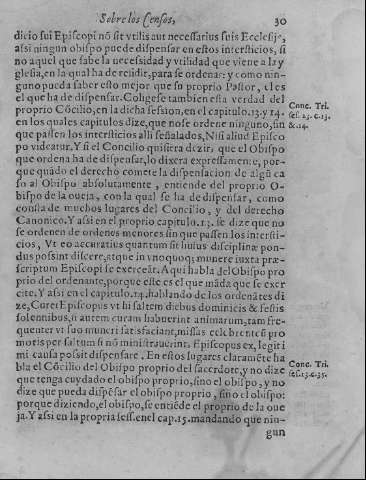 Sobre los Censos, 30
dicio sui Episcopi nõ sit vtilis aut necessarius suis Ecclesijs,
assi ningun obispo puede dispensar en estos intersticios, si
no aquel que sabe la necessidad y vtilidad que viene a la y
glesia, en la qual ha de residir, para se ordenar: y como nin-
guno pueda saber esto mejor que su proprio Pastor, el es
el que ha de dispensar. Coligese tambien esta verdad del
proprio Cõcilio, en la dicha session, en el capitulo. 13. y 14.
en los quales capitulos dize, que no se ordene ninguno, sin
que passen los intersticios alli señalados, Nisi aliud Episco
po videatur. Y si el Concilio quisiera dezir, que el Obispo
que ordena ha de dispensar, lo dixera expressamente, por-
que quãdo el derecho comete la dispensacion de algũ ca
so al Obispo absolutamente, entiende del proprio O-
bispo de la oueja, con la qual se ha de dispensar, como
consta de muchos lugares del Concilio, y del derecho
Canonico. Y assi en el proprio capitulo. 13. se dize que no
se ordenen de ordenes menores sin que passen los intersti-
cios, Vt eo accuratius quantum sit huius disciplinæ pon-
dus possint discere, atque in vnoquoq; munere iuxta præ-
scriptum Episcopi se exerceãt. Aqui habla del Obispo pro
prio del ordenante, porque este es el que mãda que se exer
cite. Y assi en el capitulo. 14. hablando de los ordenãtes di
ze, Curet Episcopus vt hi saltem diebus dominicis & festis
solennibus, si autem curam habuerint animarum, tam fre-
quenter vt suo muneri satisfaciant, missas celebrent cũ pro
motis per saltum si nõ ministrauerint, Episcopus ex, legiti
mi causa possit dispensare. En estos lugares claramẽte ha
bla el Cõcilio del Obispo proprio del sacerdote, y no dize
que tenga cuydado el obispo proprio, sino el obispo, y no
dize que pueda dispẽsar el obispo proprio, sino el obispo:
porque diziendo, el obispo, se entiẽde el proprio de la oue
ja. Y assi en la propria sess. en el cap. 15. mandando que nin-
gun
Conc. Tri.
ses. 23. c. 13.
& .14.
Conc. Tri.